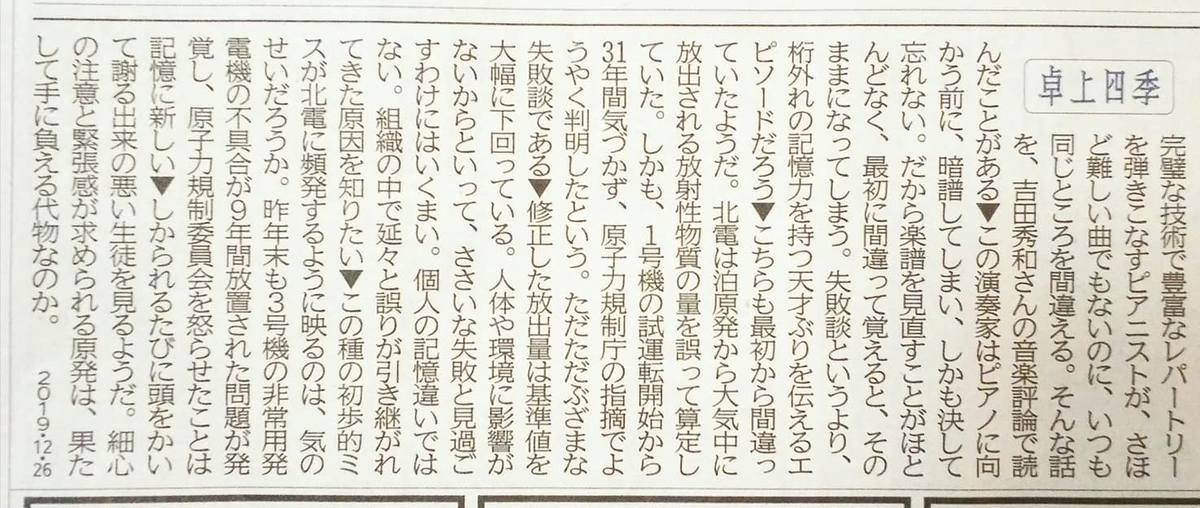 卓上四季
完璧な技術で豊富なレパートリー
を弾きこなすピアニストが、さほ
ど難しい曲でもないのに、いつも
同じところを間違える。そんな話
を、吉田秀和さんの音楽評論で読
んだことがある▼この演奏家はピアノに向
かう前に、暗譜してしまい、しかも決して
忘れない。だから楽譜を見直すことがほと
んどなく、最初に間違って覚えると、その
ままになってしまう。失敗談というより、
桁外れの記憶力を持つ天才ぶりを伝えるエ
ピソードだろう▼こちらも最初から間違っ
ていたようだ。北電は泊原発から大気中に
放出される放射性物質の量を誤って算定し
ていた。しかも、1号機の試運転開始から
31年間気づかず、原子力規制庁の指摘でよ
うやく判明したという。ただただぶざまな
失敗談である▼修正した放出量は基準値を
大幅に下回っている。人体や環境に影響が
ないからといって、ささいな失敗と見過ご
すわけにはいくまい。個人の記憶違いでは
ない。組織の中で延々と誤りが引き継がれ
てきた原因を知りたい▼この種の初歩的ミ
スが北電に頻発するように映るのは、気の
せいだろうか。昨年末も3号機の非常用発
電機の不具合が9年間放置された問題が発
覚し、原子力規制委員会を怒らせたことは
記憶に新しい▼しかられるたびに頭をかい
て謝る出来の悪い生徒を見るようだ。細心
の注意と緊張感が求められる原発は、果た
して手に負える代物なのか。
2019・12・26